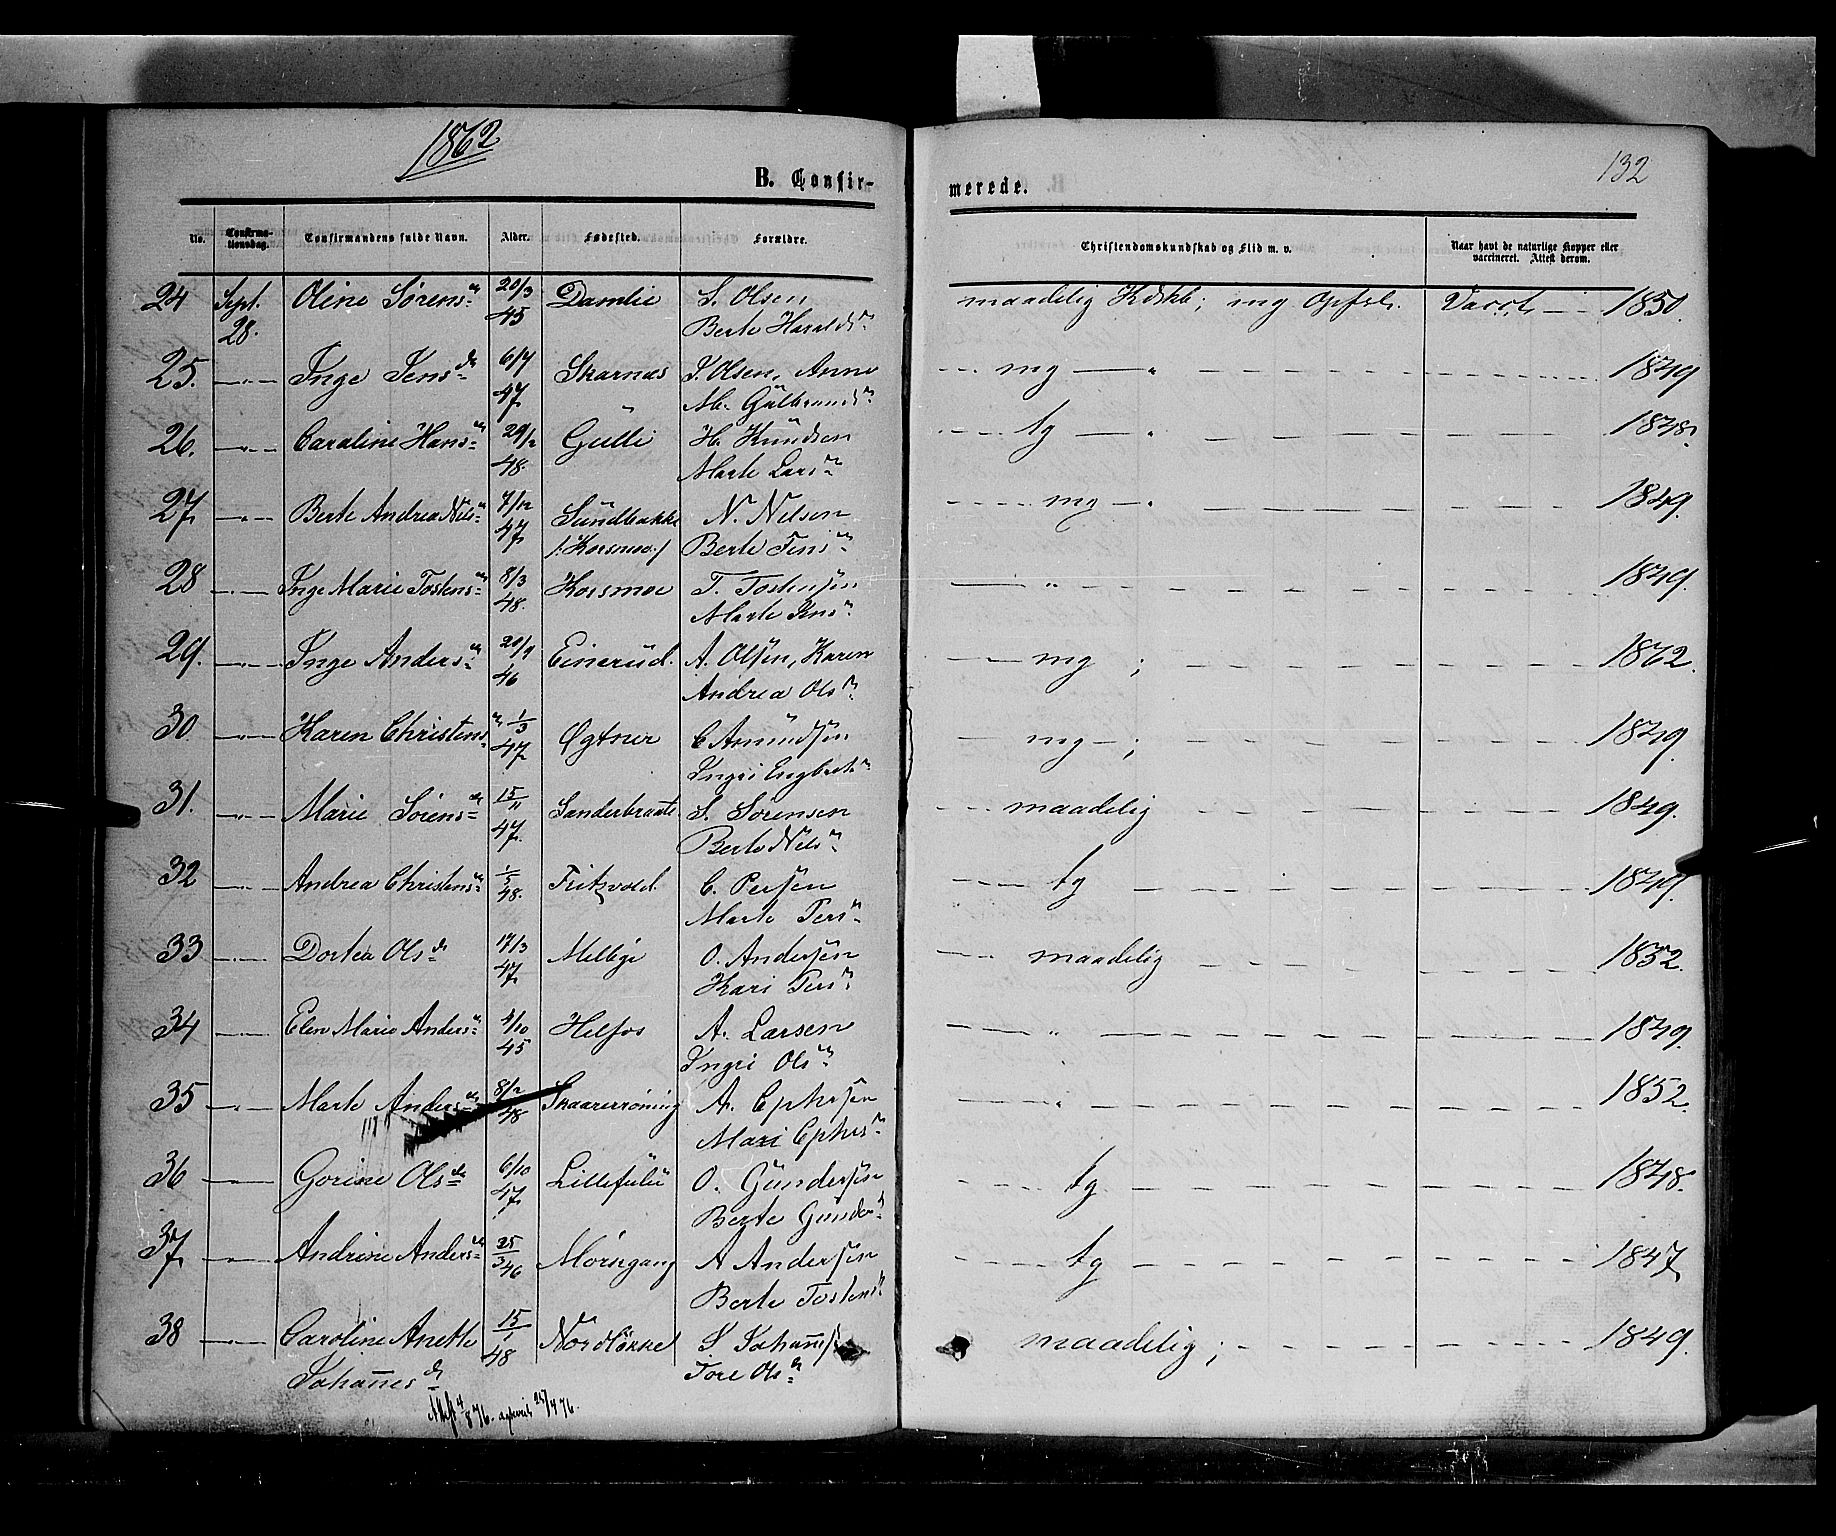 1862
B. Confir-
merede.
132
No.
Confirma-
tionsdag.
Confirmandens fulde Navn.
Alder.
Fødested.
Forældre.
Christendomskundskab og Flid m. v.
Naar havt de naturlige Kopper eller
vaccineret. Attest derom.
24 Sept. 28. Oline Sørensdr 20/3 45 Damlie S. Olsen
Berte Haraldsdr
maadelig Kdskb; mg Opfsl. Vacct — 1850.
25. —"— Inge Jensdr 6/7 47 Skarnæs J. Olsen, Anne
M. Gulbrandsdr
— mg — " — 1849
26. —"— Caroline Hansdr 29/2 48. Gülli H. Knudsen
Marte Larsdr
— tg — " — 1848.
27 —"— Berte Andrea Nilsdr 7/12 47 Sundbakke N. Nilsen
/:Korsmoe:/ Berte Jensdr
— mg — " — 1849.
28 —"— Inge Marie Tostensdr 8/3 48. Korsmoe T. Tostensen
Marte Jensdr
— " — 1849.
29. —"— Inge Andersdr 20/9 46 Einerud. A. Olsen, Karen
Andrea Olsdr
— mg ; — 1862.
30 —"— Karen Christensdr 1/3 47 Øgtner C Amundsen
Ingri Engbretsdr
— mg — ; — 1849.
31. —"— Marie Sørensdr 15/11 47. Sanderbraate S. Sørensen
Berte Nilsdr
— maadelig — 1849.
32 —"— Andrea Christensdr 1/5 48. Fritzvold C. Persen
Marte Persdr
— tg — 1849.
33 —"— Dortea Olsdr 17/3 47 Melbye O. Andersen
Kari Persdr
— maadelig — 1852.
34 —"— Elen Marie Andersdr 4/10 45 Helfos A. Larsen
Ingri Olsdr
— " — 1849.
35 —"— Marte Andersdr 8/2 48 Skaarerrøning A. Ephrsen
Mari Ephrsdr
— " — 1852.
36 —"— Gorine Olsdr 6/10 47 Lillefulu O. Gundersen
Berte Gundersd
— tg — 1848.
37 —"— Andrine Andersdr 25/3 46 Mörsgang A Andersen
Berte Tostensdr
— tg — 1847
38 —"— Caroline Anette 15/1 48 Nordløkke J Johannes
Johannesdr Tore Olsdr
maadelig; — 1849.